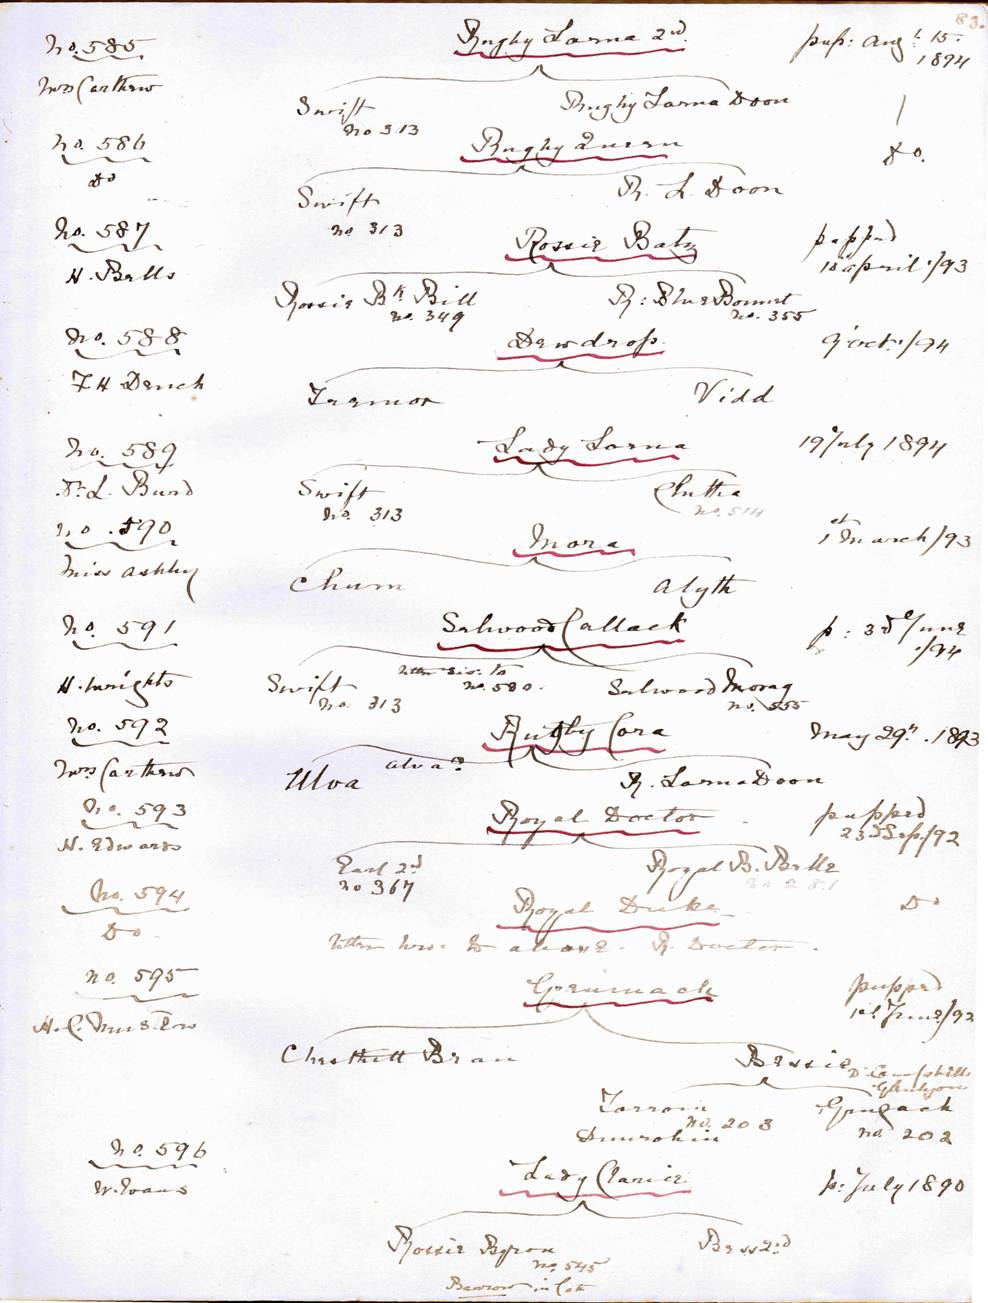 83.
No. 585 Rugby Lorna 2nd pup: Augt. 15. 1894
Mrs Carthew
Swift no 313 Rugby Lorna Doon
No. 586 Rugby Queen Do.
Do
Swift no 313 R. L. Doon
No. 587 Rossie Baty pupped 18 april /93
H. Betts
Rossie Bk Bill no. 349 R: Blue Bonnet no. 355
No. 588 Dewdrop 9 oct. /94
F H Dench
Tramor Vidd
No. 589 Lady Lorna 19 July 1894
F. L. Burd
Swift no. 313 Chutta no. 514
no. 590 Mora 1st March /93
Miss Ashby
Chum Alyth
No. 591 Selwood Callack p: 3rd June /94
H. Wright
Swift no. 313 litter sis. to no. 580. Selwood Morag no. 555
No. 592 Rugby Cora May 29th. 1893
Mrs Carthew
Ulva alva? R. Lorna Doon
No. 593 Royal Doctor pupped 23d Sep/92
H. Edwards
Earl 2nd no 367 Royal B. Belle no 281
No. 594 Royal Duke Do
Do
litter bro. to above. R. Doctor.
No. 595 Greumach pupped 1st June/92
H. C. Munslow
Chesthill Bran Bessie D. Campbell Glenlyon
Torrom no. 203 Dunrobin Grugach no 202
No. 596 Lady Clarice p: July 1890
W. Evans
Rossie Byron no. 545 Bess 2nd
in Cat